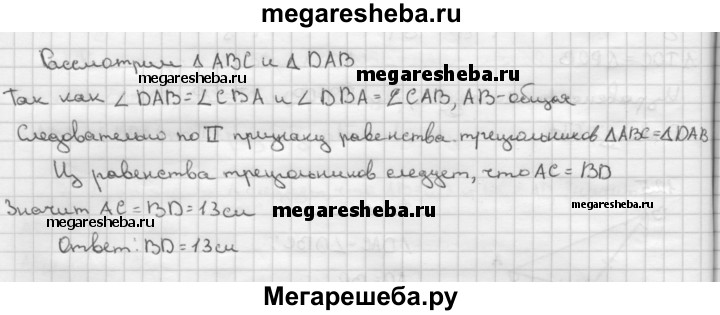 megaresheba.ru
Рассмотрим Δ ABC и Δ DAB
megaresheba.ru
megaresheba.ru
Так как ∠ DAB = ∠ CBA и ∠ DBA = ∠ CAB, AB - общая
megaresheba.ru
Следовательно по II признаку равенства треугольников ΔABC = ΔDAB
Из равенства треугольников следует, что AC = BD
Значит AC = BD = 13 см
megaresheba.ru
megaresheba.ru
Ответ: BD = 13 см
megaresheba.ru
Мегарешеба.ру